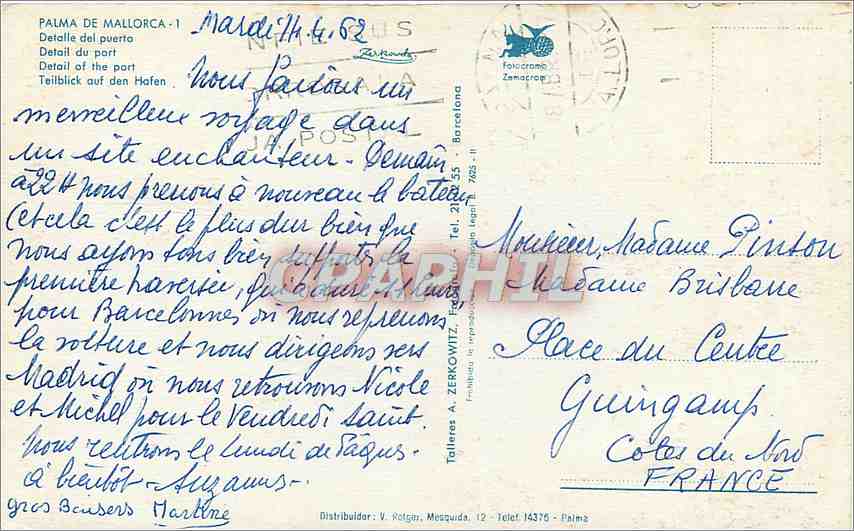 PALMA DE MALLORCA - 1
Detalle del puerto
Detail du port
Detail of the port
Teilblick auf den Hafen
Zerkowitz
Fotocromo
Zemacrom
Mardi 4.62
Nous faisons un
merveilleux voyage dans
un site enchanteur - Demain
à 22 H nous prenons à nouveau le bateau
(et cela c'est le plus dur bien que
nous ayons tous bien supporté la
première traversée, qui a duré
pour Barcelonne où nous reprenons
la voiture et nous dirigeons vers
Madrid où nous retrouvons Nicole
et Michel pour le Vendredi Saint.
Nous rentrons le Lundi de Pâques -
à bientôt - Suzanne -
gros Baisers Martine
Talleres A. ZERKOWITZ, Tel. 55 - Barcelona
Prohibida la reproducción Legal B. 7625 - II
Monsieur, Madame Pinson
Madame Brisbarre
Place du Centre
Guingamp
Cotes du Nord
FRANCE
Distribuidor: V. Rotger, Mesquida, 12 - Telef. 14376 - Palma
CRAPHIL